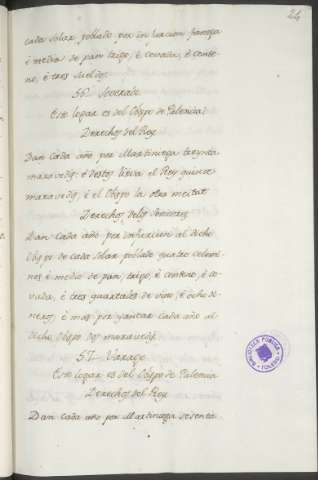 24
cada solar poblado por infurcion fanega
é media de pan trigo, é cevada, é cente-
no, é tres sueldos.
Este logar es del Obispo de Palencia
Derechos del Rey
Dan cada año por Martiniega treynta
maravedis: é destos lieva el Rey quince
maravedis, é el Obispo la otra meitat
Derechos de los
Dan cada año por infurcion al dicho
Obispo de cada solar poblado quatro celemi-
nes é medio de pan, trigo, é centeno, é ce-
vada, é tres quartales de vino, é ocho di-
neros, é mas por yantar cada año al
dicho Obispo maravedis
57
Este logar es del Obispo de Palencia
Derechos del Rey
Dan cada año por Martiniega sesenta
BIBLIOTECA PUBLICA
TOLEDO